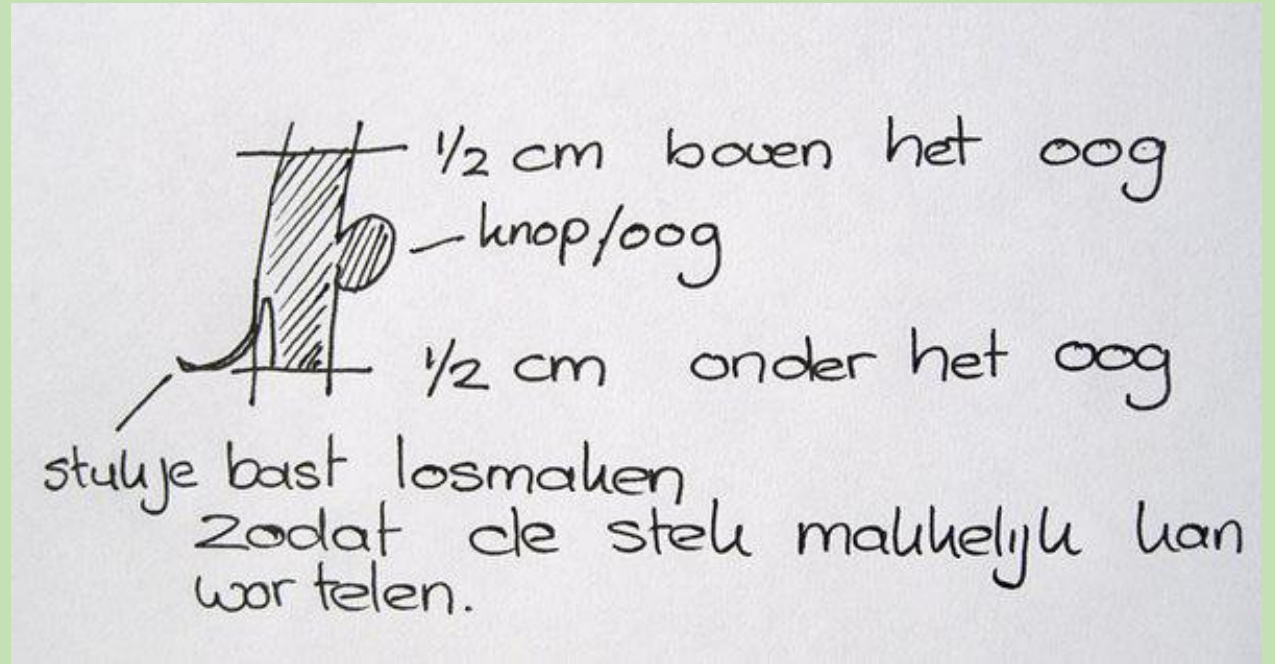 1/2 cm boven het oog
knop/oog
1/2 cm onder het oog
stukje bast losmaken
zodat de stek makkelijk kan
wortelen.